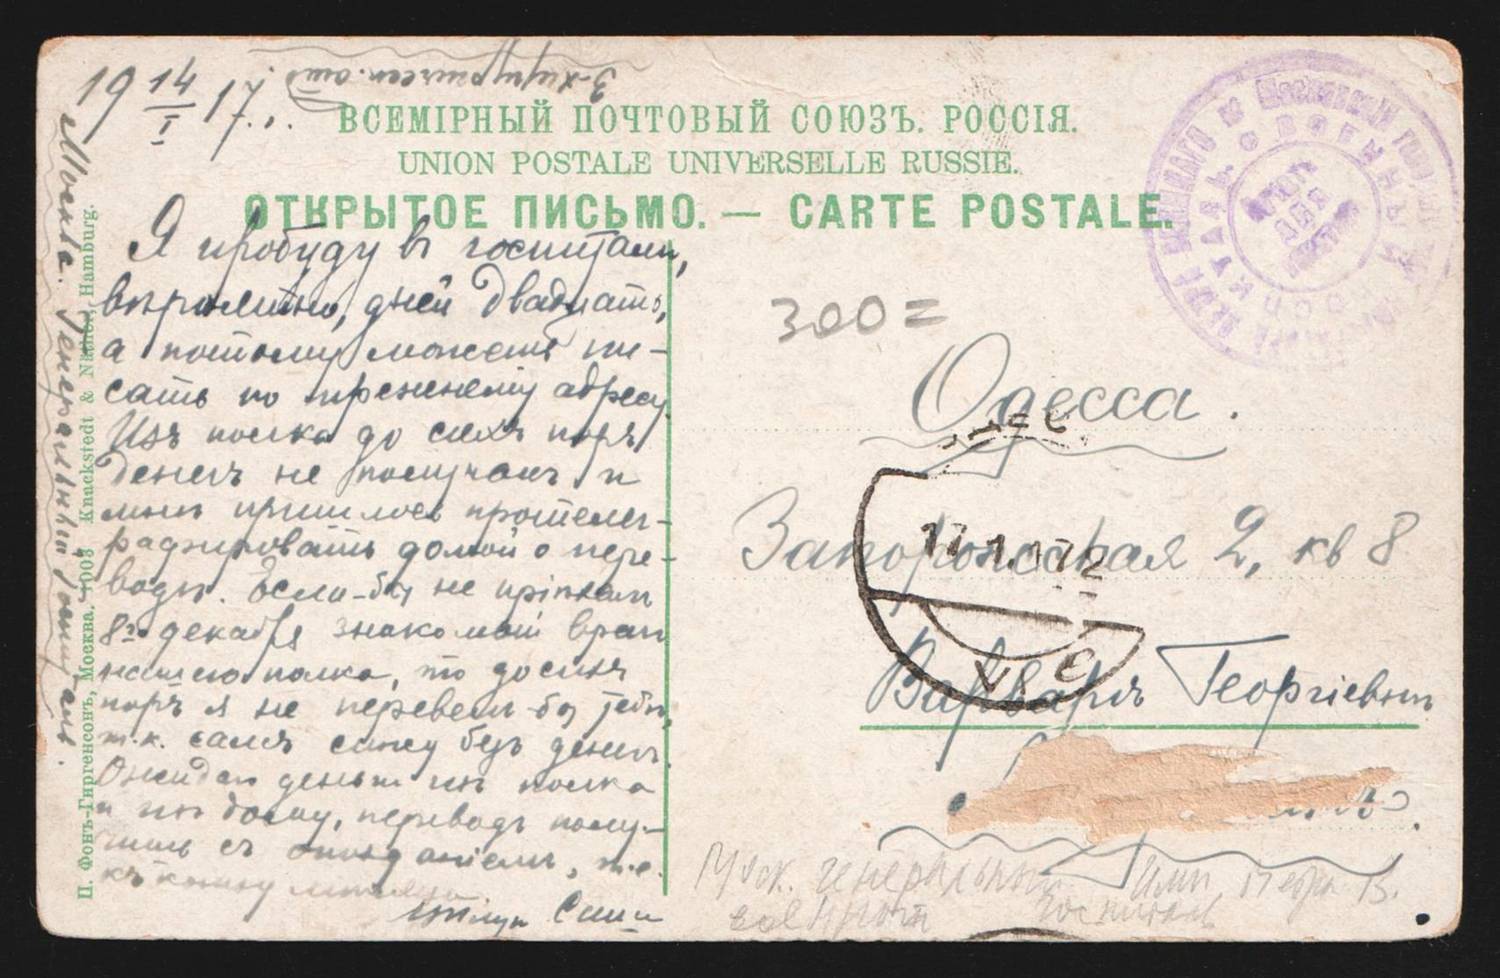 3-хирургическ. отд.
19 14/I 17.
ВСЕМІРНЫЙ ПОЧТОВЫЙ СОЮЗЪ. РОССІЯ.
UNION POSTALE UNIVERSELLE RUSSIE.
ОТКРЫТОЕ ПИСЬМО. — CARTE POSTALE.
Я пробуду въ госпитали,
вѣроятно, дней двадцать,
а потому можешь пи-
сать по прежнему адресу.
Изъ полка до сихъ поръ
денегъ не получалъ и
мнѣ пришлось протеле-
графировать домой о пере-
водѣ. Если-бы не пріѣхалъ
8го декабря знакомый врач
нашего полка, то до сихъ
поръ я не перевелъ-бы тебѣ,
т.к. самъ сижу безъ денегъ.
Ожидаю деньги изъ полка
и изъ дому, переводъ полу-
чишь съ опозданіемъ, т.е.
къ концу мѣсяца
Цѣлую Саша
Москва. Генеральный госпиталь.
П. Фонъ-Гиргенсонъ, Москва. 1908 Knackstedt & Näther, Hamburg.
300=
Одесса.
Запорожская 2, кв 8
17.1.17
Варварѣ Георгіевнѣ
Моск. генеральный Имп. Петра I
военный госпиталь